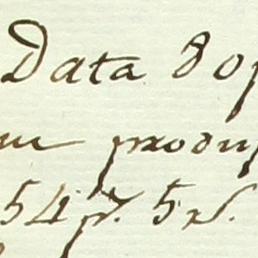 Data 8 op
m produ
54 p. 5 s.